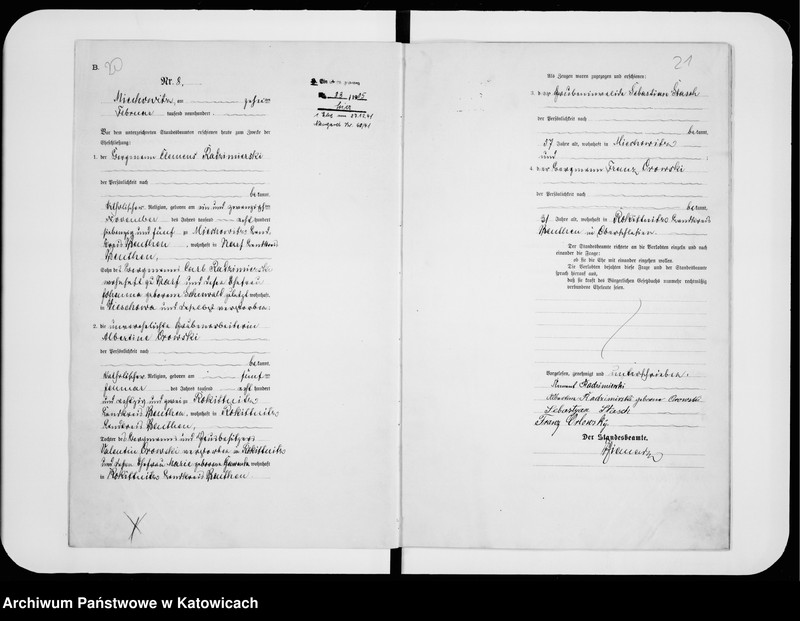 B. 20
Nr. 8.
Miechowitz, am zehnten
Februar tausend neunhundert
Vor dem unterzeichneten Standesbeamten erschienen heute zum Zwecke der
Eheschließung:
1. der Bergmann Clemens Kadzimierski
der Persönlichkeit nach
kannt,
katholischer Religion, geboren am ein und zwanzigsten
November des Jahres tausend acht hundert
siebenzig und fünf zu Miechowitz Land-
kreis Beuthen, wohnhaft in Karf Landkreis
Beuthen,
Sohn des Bergmanns Carl Kadzimierski
wohnhaft zu Karf und dessen Ehefrau
Johanna geborene zuletzt wohnhaft
in und daselbst verstorben.
2. die unverehelichte Grubenarbeiterin
Albertine Orowski
der Persönlichkeit nach
kannt,
katholischer Religion, geboren am fünften
Januar des Jahres tausend acht hundert
und achtzig und zwei zu Rokittnitz
Landkreis Beuthen, wohnhaft in Rokittnitz
Landkreis Beuthen,
Tochter des Bergmanns und Hausbesitzers
Valentin Orowski verstorben in Rokittnitz
und dessen Ehefrau Marie geborene wohnhaft
in Rokittnitz Landkreis Beuthen
21
Als Zeugen waren zugezogen und erschienen:
3. der Grubeninvalide Sebastian Stasch
der Persönlichkeit nach
kannt,
57 Jahre alt, wohnhaft in Miechowitz
und
4. der Bergmann Franz Orowski
der Persönlichkeit nach
kannt,
31 Jahre alt, wohnhaft in Rokittnitz Landkreis
Beuthen in Oberschlesien
Der Standesbeamte richtete an die Verlobten einzeln und nach
einander die Frage:
ob sie die Ehe mit einander eingehen wollen.
Die Verlobten bejahten diese Frage und der Standesbeamte
sprach hierauf aus,
daß sie kraft des Bürgerlichen Gesetzbuchs nunmehr rechtmäßig
verbundene Eheleute seien.
Vorgelesen, genehmigt und unterschrieben.
Kadzimierski
Albertine Kadzimierski geborene Orowski
Sebastyan Stasch
Franz Orlowski
Der Standesbeamte.
Archiwum Państwowe w Katowicach